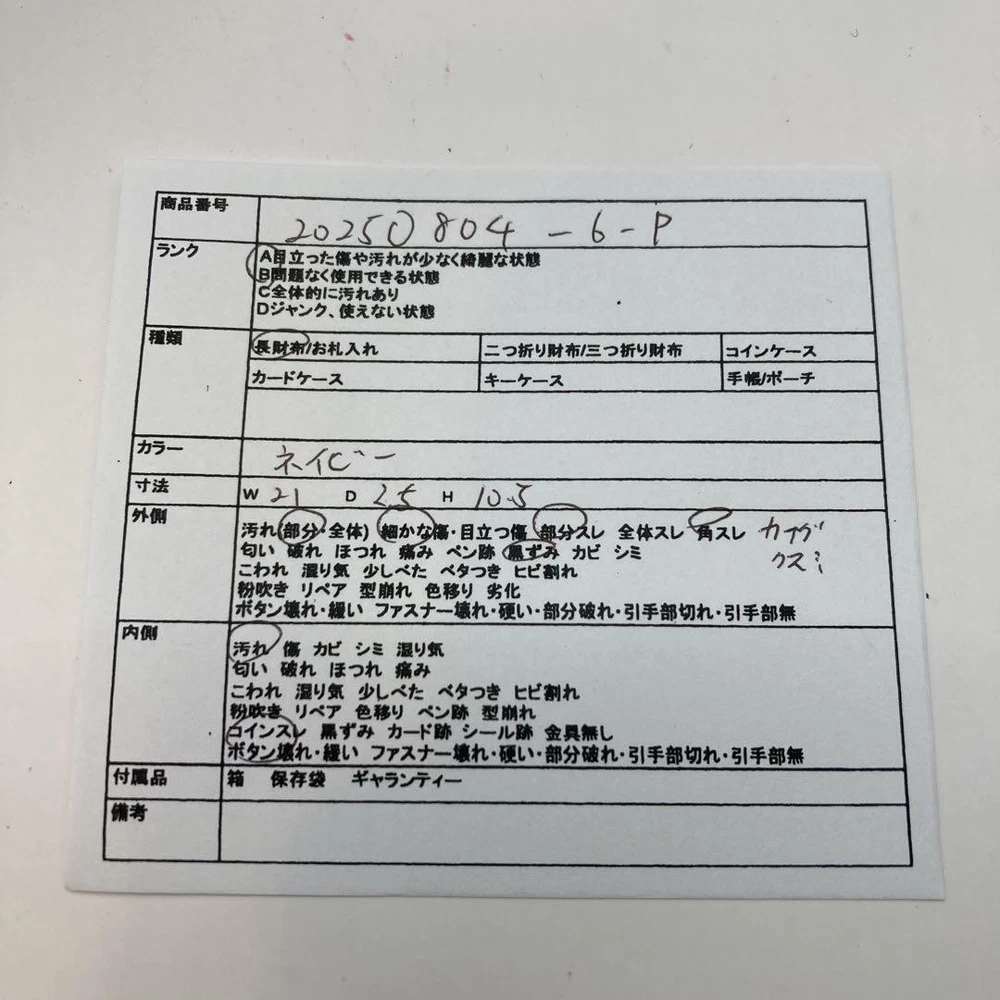 商品番号 20250804-6-P
ランク A目立った傷や汚れが少なく綺麗な状態
B問題なく使用できる状態
C全体的に汚れあり
Dジャンク、使えない状態
種類 長財布/お札入れ 二つ折り財布/三つ折り財布 コインケース
カードケース キーケース 手帳/ポーチ
カラー ネイビー
寸法 W 21 D 2.5 H 10.5
外側 汚れ(部分・全体) 細かな傷・目立つ傷 部分スレ 全体スレ 角スレ カナグ
匂い 破れ ほつれ 痛み ペン跡 黒ずみ カビ シミ クスミ
こわれ 湿り気 少しべた ベタつき ヒビ割れ
粉吹き リペア 型崩れ 色移り 劣化
ボタン壊れ・緩い ファスナー壊れ・硬い・部分破れ・引手部切れ・引手部無
内側 汚れ 傷 カビ シミ 湿り気
匂い 破れ ほつれ 痛み
こわれ 湿り気 少しべた ベタつき ヒビ割れ
粉吹き リペア 色移り ペン跡 型崩れ
コインスレ 黒ずみ カード跡 シール跡 金具無し
ボタン壊れ・緩い ファスナー壊れ・硬い・部分破れ・引手部切れ・引手部無
付属品 箱 保存袋 ギャランティー
備考